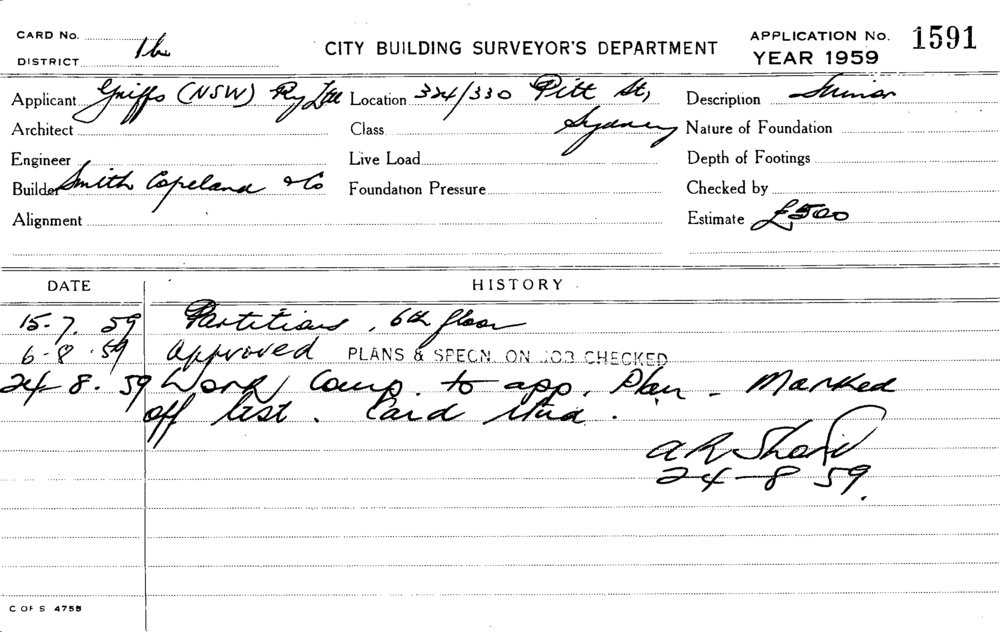 CARD No.
DISTRICT
CITY BUILDING SURVEYOR'S DEPARTMENT
APPLICATION No. 1591
YEAR 1959
Applicant Griffs (NSW) Pty Ltd Location 324/330 Pitt St, Sydney Description
Architect Class Nature of Foundation
Engineer Live Load Depth of Footings
Builder Smith Copeland & Co Foundation Pressure Checked by
Alignment Estimate £500
DATE HISTORY
15-7. 59 Partitions, 6th floor
6-8-59 Approved PLANS & SPECN. ON JOB CHECKED
24-8. 59 Work Comp. to app. Plan - Marked
off list. Card
24-8 59.
C OF S 4755